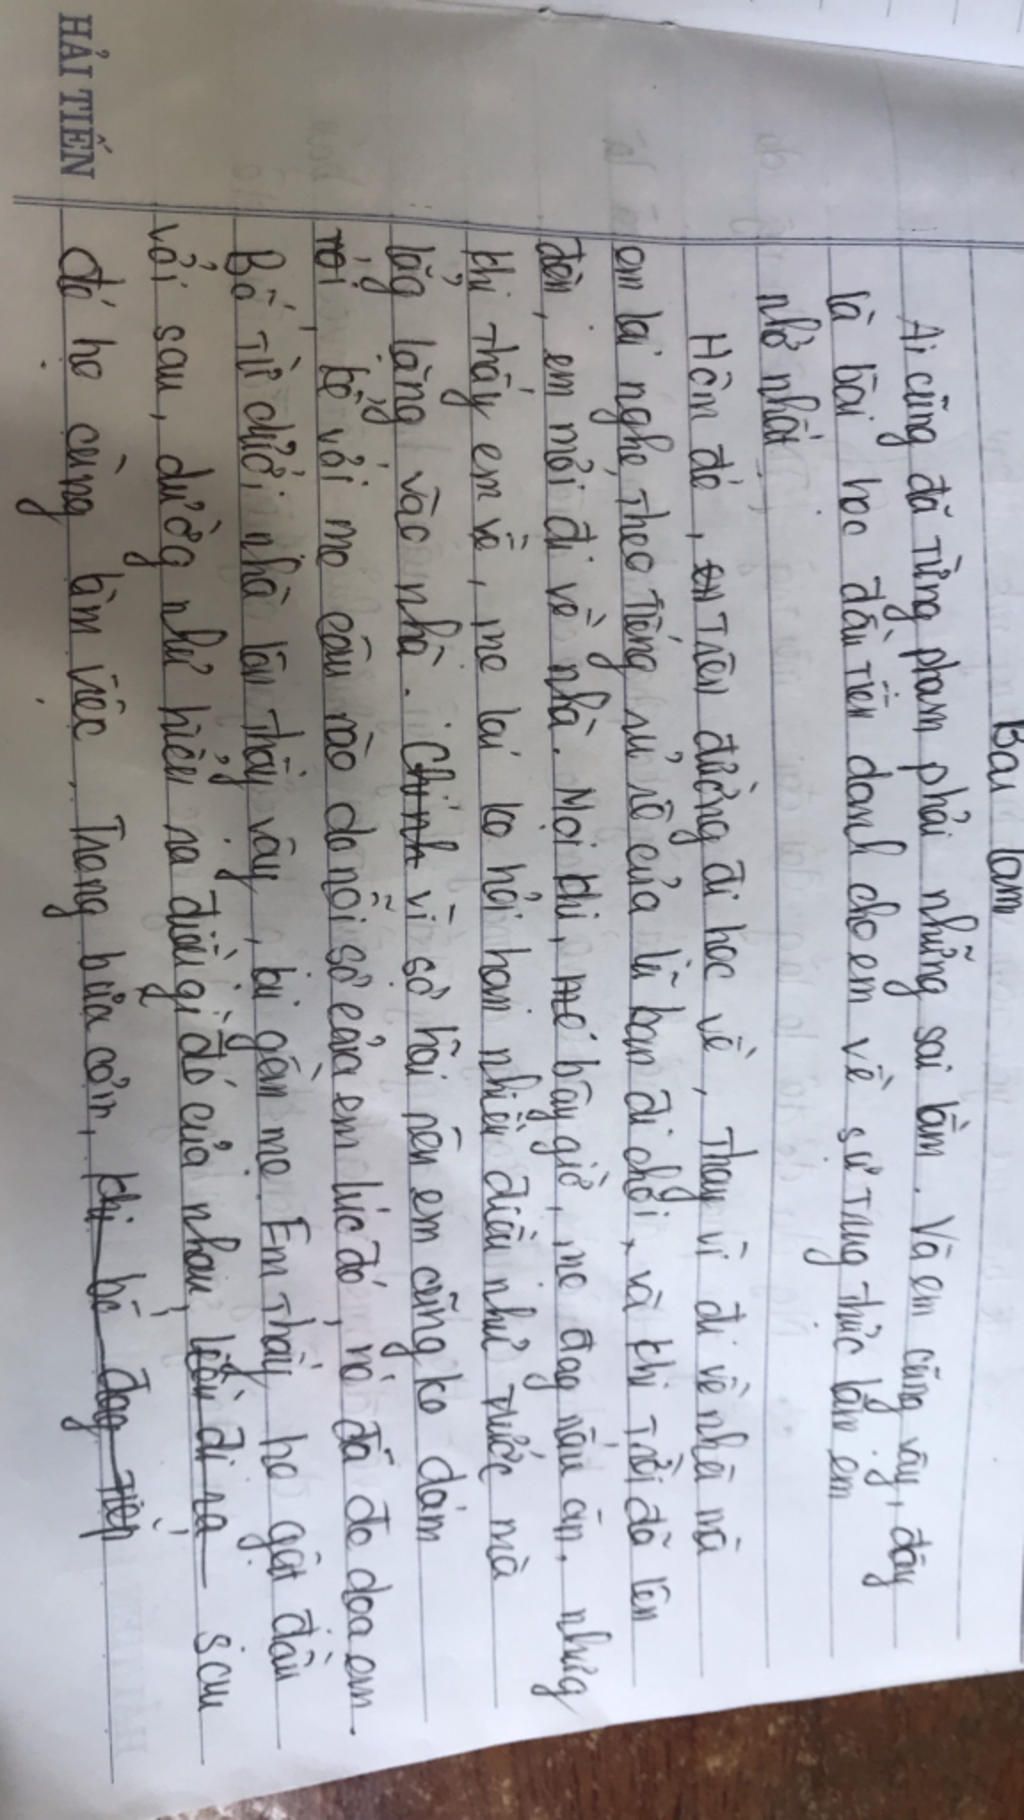 Bài làm
Ai cũng đã từng phạm phải những sai lầm. Và em cũng vậy, đây
là bài học đầu tiên danh cho em về sự trung thức làm em
nhớ nhất
Hôm đó, trên đường đi học về, Thay vì đi về nhà mà
em lại nghe theo tiếng rủ rê của lũ bạn đi chơi, và khi trời đã lên
đèn, em mới đi về nhà. Mọi khi, bây giờ, mẹ đag nấu ăn, nhưg
khi thấy em về, mẹ lại ko hỏi han nhiều điều như trước mà
lẳg lặng vào nhà. Chính vì sợ hãi nên em cũng ko dám
nói, kể với mẹ câu nào do nỗi sợ của em lúc đó, nó đã đe doạ em.
Bố từ dưới nhà lên thấy vậy, lại gần mẹ. Em thấy họ gật đầu
với sau, dườg như hiểu ra điều gì đó của nhau, liền đi ra sau
đó họ cùng làm việc. Trong bữa cơm, khi bố đag tiếp
HẢI TIẾN